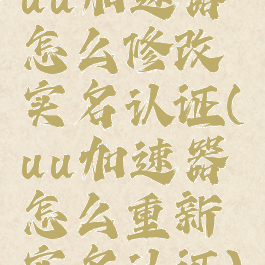 uu加速器
怎么修改
实名认证(
uu加速器
怎么重新
实名认证)